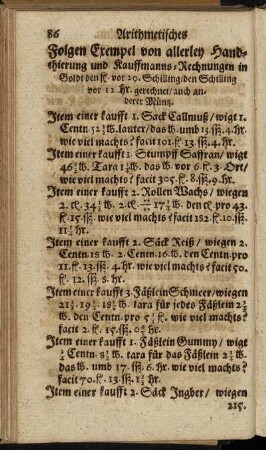 86 Arithmetisches
Folgen Exempel von allerley Hand-
thierung und Kauffmanns-Rechnungen in
Goldt den fl. vor 29. Schilling / den Schilling
vor 12 Hr. gerechnet / auch an-
derer Müntz.
Item einer kaufft 1. Sack Callmuß / wigt 1.
Centn. 52½ ℔. lauter / das ℔. umb 13. ßz. 4. hr.
wie viel machts? facit 101. fl. 13. ßz. 4. hr.
Item einer kaufft 1. Stumpff Saffran / wigt
46 ℔. Tara 1¼ ℔. das ℔. vor 6. fl. 3. Ort /
wie viel machts? facit 305. fl. 8. ßz. 9. hr.
Item einer kaufft 2. Rollen Wachs / wiegen
2. ℔. den ℔. pro 43.
fl. 15. ßz. wie viel machts? facit 182 fl. 10. ßz.
hr.
Item einer kaufft 2. Säck Reiß / wiegen 2.
Centn. 18 ℔. 2. Centn. 16. ℔. den Centn. pro
11. fl. 13. ßz. 4. hr. wie viel machts? facit 50.
fl. 12. ßz. 8. hr.
Item einer kaufft 3. Fäßlein Schmeer / wiegen
℔. tara für jedes Fäßlein
℔. den Centn. pro fl. wie viel machts?
facit 2. fl. 15. ßz. hr.
Item einer kaufft 1. Fäßlein Gummy / wigt
Centn. ℔. tara für das Fäßlein ℔.
das ℔. umb 17. ßz. 6. hr. wie viel machts?
facit 70. fl. 13. ßz. hr.
Item einer kaufft 2. Säck Ingber / wiegen
215.